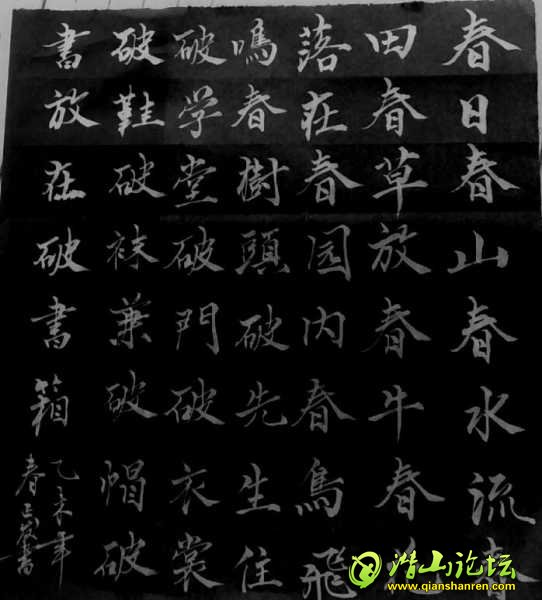 春日春山春水流春
田春草放春牛春
落在春园内春鳥飛
鳴春樹頭破先生住
破学堂破門破衣裳
破鞋破袜兼破帽破
書放在破書箱
乙未年
春書
潜山论坛
www.qianshanren.com